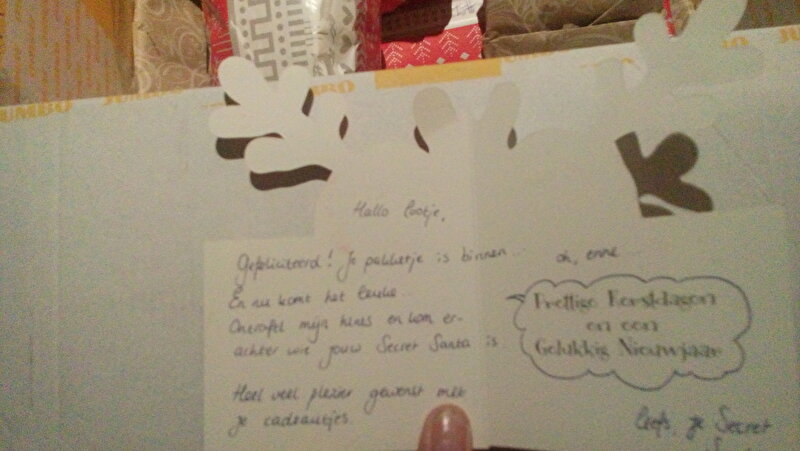 JUMBO
Hallo lootje,
Gefeliciteerd! Je pakketje is binnen...
En nu komt het leuke...
Ontrafel mijn hints en kom er-
achter wie jouw Secret Santa is.
Heel veel plezier gewenst met
je cadeautjes.
oh, enne...
Prettige Kerstdagen
en een
Gelukkig Nieuwjaar
liefs, je Secret